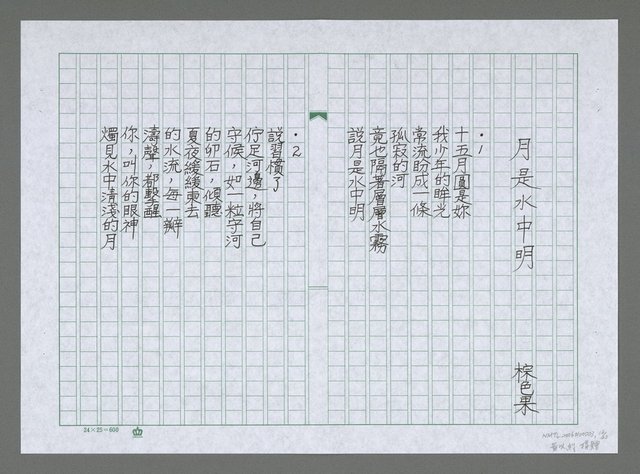 月是水中明
棕色果
·1
十五月圓是妳
我少年的眸光
常流盼成一條
孤寂的河
竟也隔著層層水霧
說月是水中明
·2
說習慣了
佇足河邊，將自己
守候，如一粒守河
的卵石，傾聽
夏夜緩緩東去
的水流，每一瓣
濤聲，都擊醒
你，叫你的眼神
燭見水中清淺的月
24×25=600